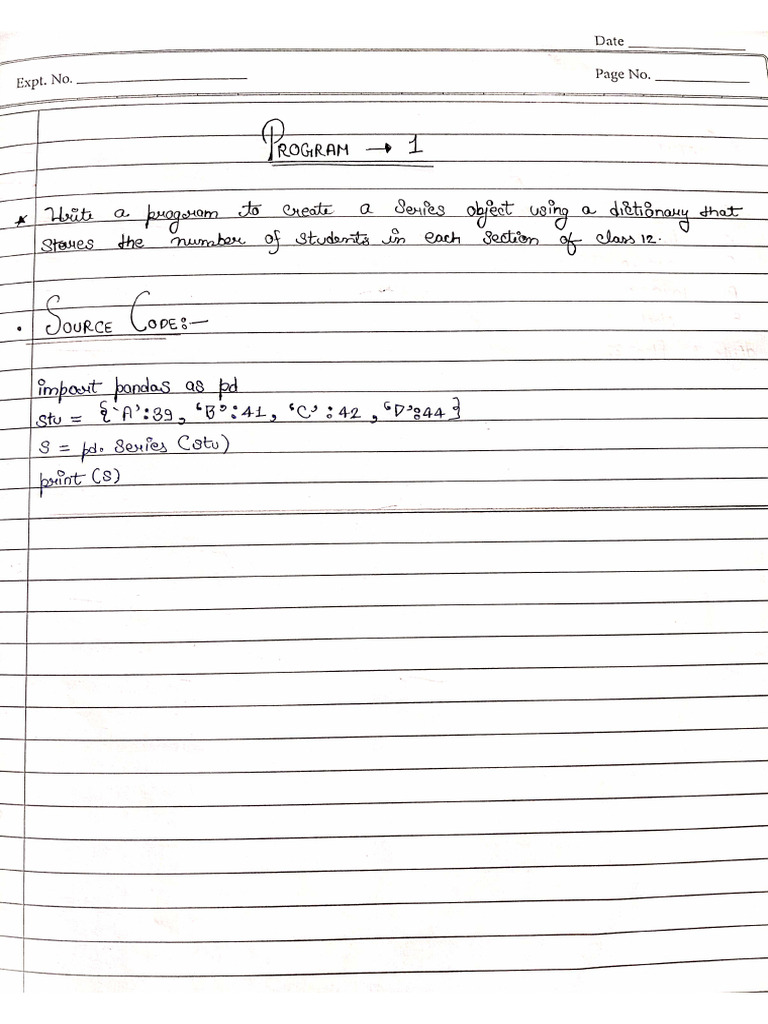 Date
Expt. No.
Page No.
PROGRAM → 1
* Write a program to create a Series object using a dictionary that
stores the number of students in each section of class 12.
• SOURCE CODE:-
import pandas as pd
stu = {'A':39, 'B':41, 'C':42, 'D':44}
S = pd. Series (stu)
print (S)